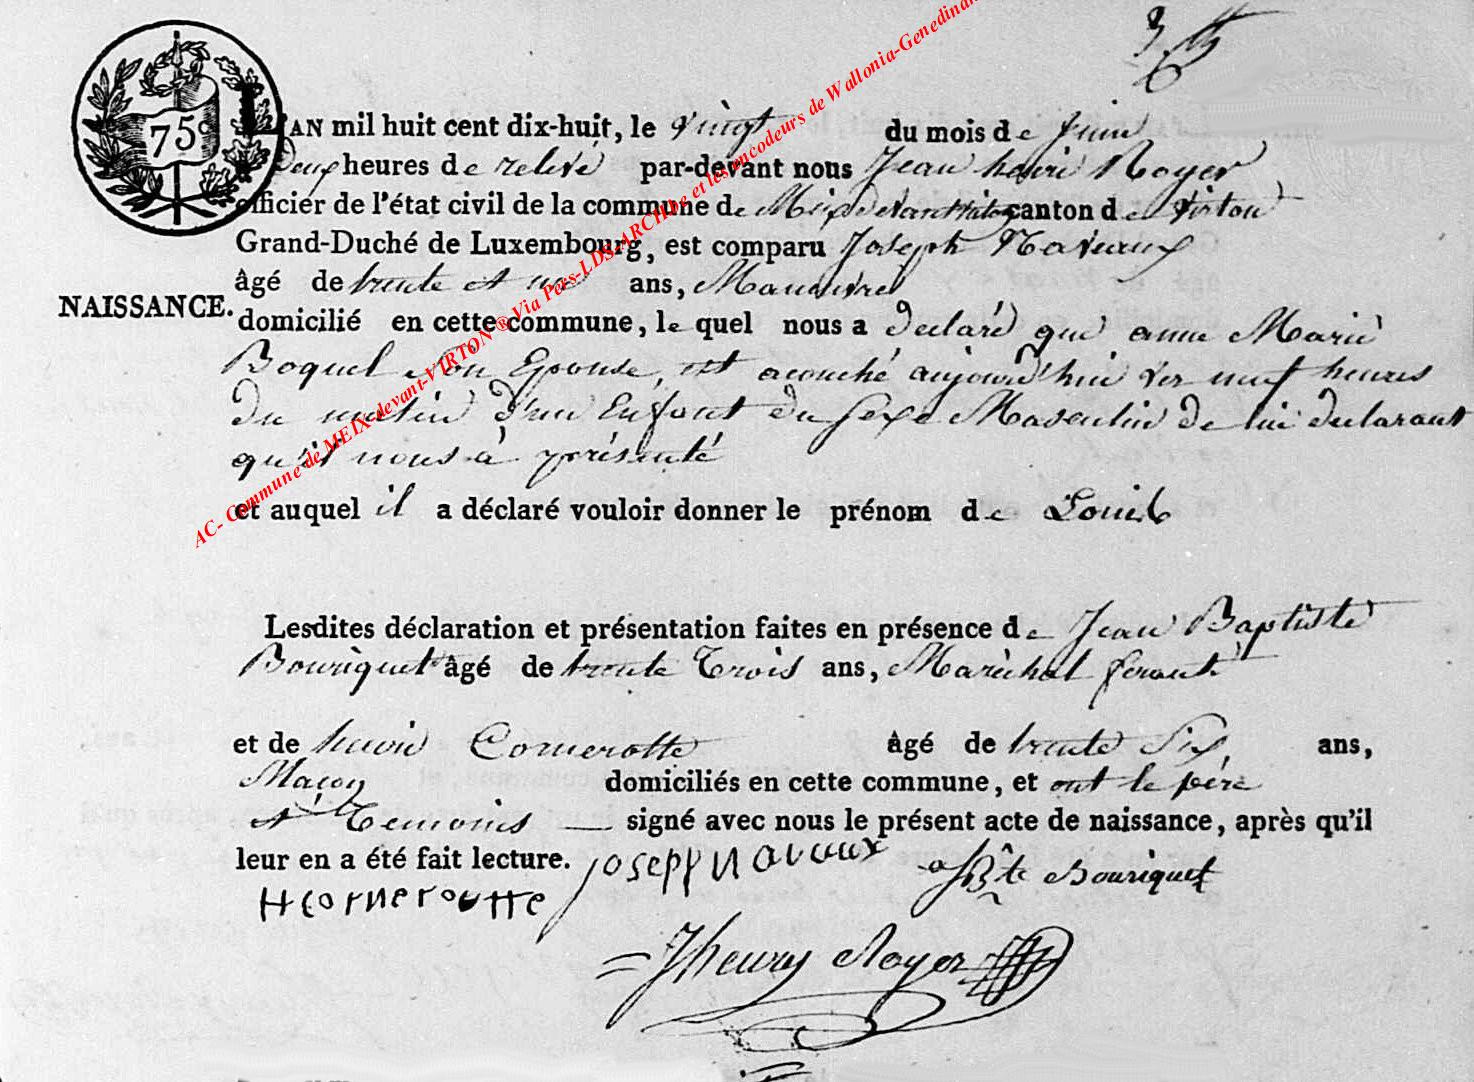 75ᶜ
L'AN mil huit cent dix-huit, le vingt du mois de Juin
Deux heures de relevé par-devant nous Jean henri Royer
officier de l'état civil de la commune de Meix devant virton canton de virton
Grand-Duché de Luxembourg, est comparu Joseph Navaux
âgé de trente et un ans, Manœuvre
NAISSANCE.
domicilié en cette commune, le quel nous a declaré que anne Marie
Boquel Son Epouse, est acouché aujourd'hui ver neuf heures
du matin d'un Enfant du Sexe Masculin de lui declarant
qu'il nous à présenté
et auquel il a déclaré vouloir donner le prénom de Louis
Lesdites déclaration et présentation faites en présence de Jean Baptiste
Bouriquet âgé de trente Trois ans, Maréchal ferant
et de henri Cornerotte âgé de trente Six ans,
Maçon domiciliés en cette commune, et ont le père
et Temoins signé avec nous le présent acte de naissance, après qu'il
leur en a été fait lecture. Joseph Navaux JBte Bouriquet
H cornerotte
Jhenry Royer
AC- Commune de MEIX-devant-VIRTON ® Via Pers-LDS-ARCHbe et les encodeurs de Wallonia-Genedinan